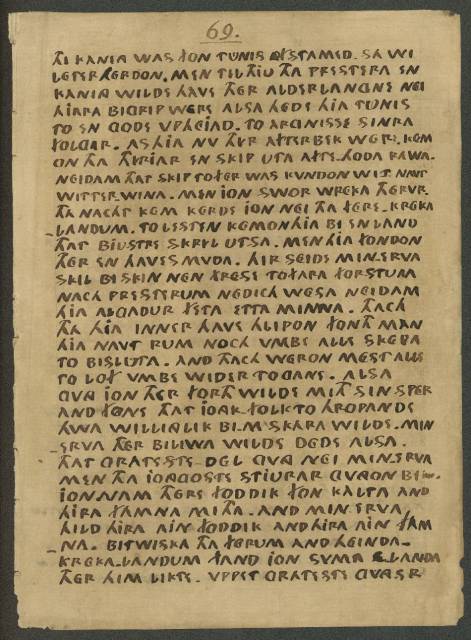 69.
THI KANING WAS FON TUNIS OFSTAMED. SA WI
LETER HERDON. MEN TIL THIU THA PRESTERA EN
KANING WILDE HAVE THER ALDERLANGNE NEI
HIARA BIGRIP WERE ALSA HEDE HIA TUNIS
TO EN GODE UPHEIAD. TO ARGNISSE SINRA
FOLGAR. AS HIA NV THYR AFTER BEK WERE. KEM
ON THA THIRIAR EN SKIP UTA AFTE HODA RAWA.
NEIDAM THAT SKIP TO FER WAS KUNDON WIT NAVT
WITHER WINNA. MEN ION SWOR WREKA THERVR.
THA NACHT KEM KERDE ION NEI THA FERE-KREKA
LANDUM. TO LESTEN KEMON HIA BI EN LAND
THAT BIUSTRE SKRYL UTSA. MEN HIA FONDON
THER EN HAVESMVDA. HIR SEIDE MINERVA
SKIL BI SKIN NEN FRESE TO FARA FORSTUM
NACH PRESTERUM NEDICH WESA NEIDAM
HIA ALGADUR FETA ETTA MINNA. THACH
THA HIA INNER HAVE HLIPON FONTH MAN
HIA NAVT RUM NOCH VMBE ALLE SKEPA
TO BISLUTA. AND THACH WERON MEST ALLE
TO LAF VMBE WIDER TO GANE. ALSA
GVNG ION THER FORTH WILDE MITH SIN SPER
AND FONE THAT IONGK-FOLK TO HROPANDE
HWA WILLIGLIK BI-M SKARA WILDE. MIN
-ERVA THER BILIWA WILDE DEDE ALSA.
THAT GRATESTE-DEL GVNG NEI MINERVA
MEN THA IONGOSTE STIURAR GVNGON BI
ION NAM THERE FODDIK FON KALTA AND
HIRA FAMNA MITHA. AND MINERVA
HILD HIRA AIN FODDIK AND HIRA AIN FAM
-NA. BITWISKA THA FERUM AND HEINDA-
KREKA-LANDUM FAND ION SVMA ELANDA
THER HIM LIKTE. VPPET GRATESTE GVNG-ER